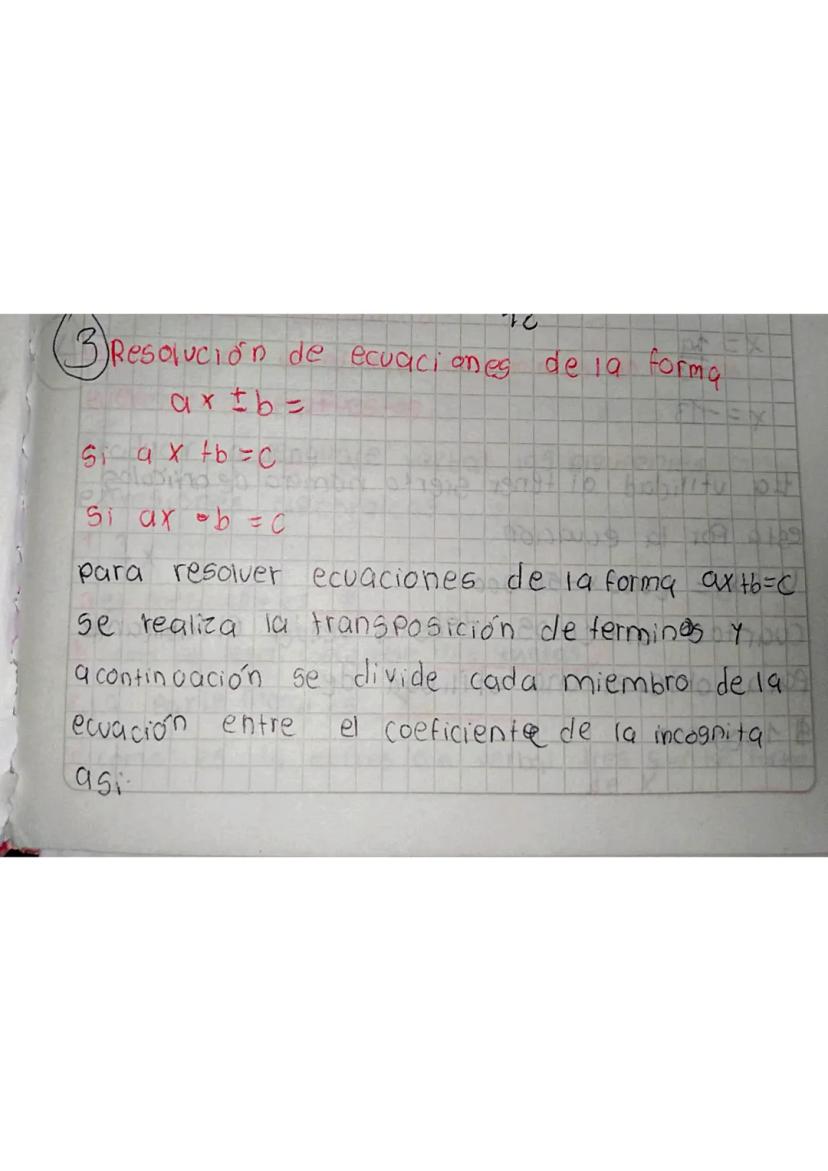 3 Resolución de ecuaciones de la forma
ax ± b =
Si ax + b = c
Si ax - b = c
para resolver ecuaciones de la forma ax+b=c
se realiza la transposición de terminos y
acontinuación se divide cada miembro de la
ecuación entre el coeficiente de la incognita
asi: